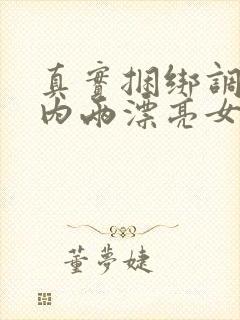 真實捆綁調
內兩漂亮女
董夢婕